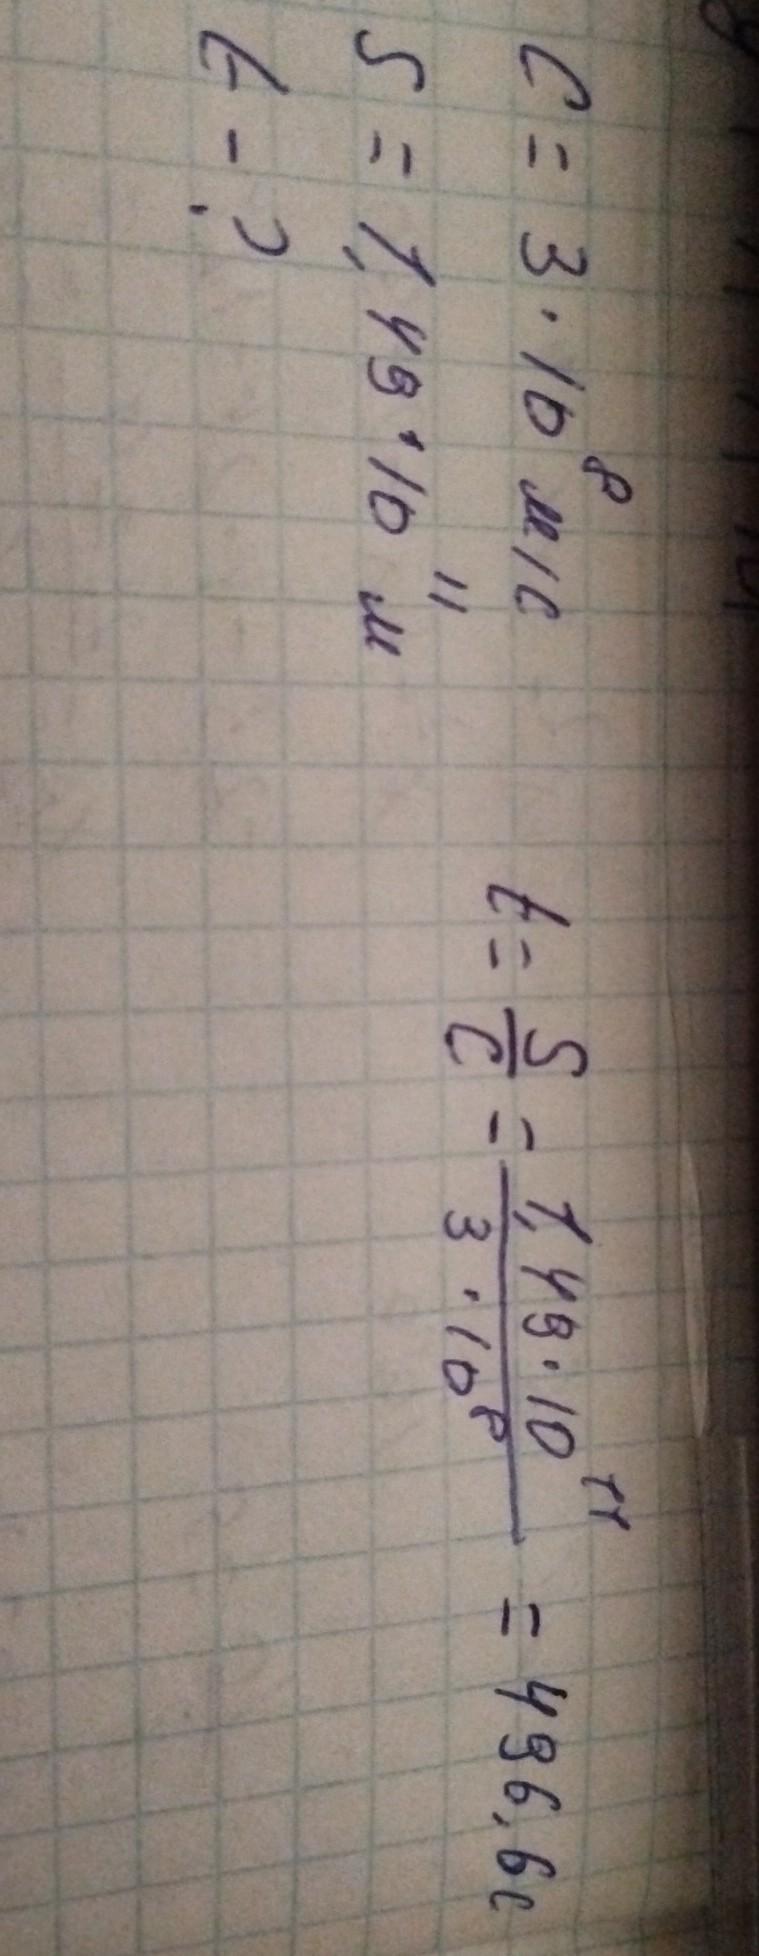 C = 3 · 10⁸ м/с
S = 1,49 · 10¹¹ м
t - ?
t = S/C = 1,49 · 10¹¹ / 3 · 10⁸ = 496,6 с